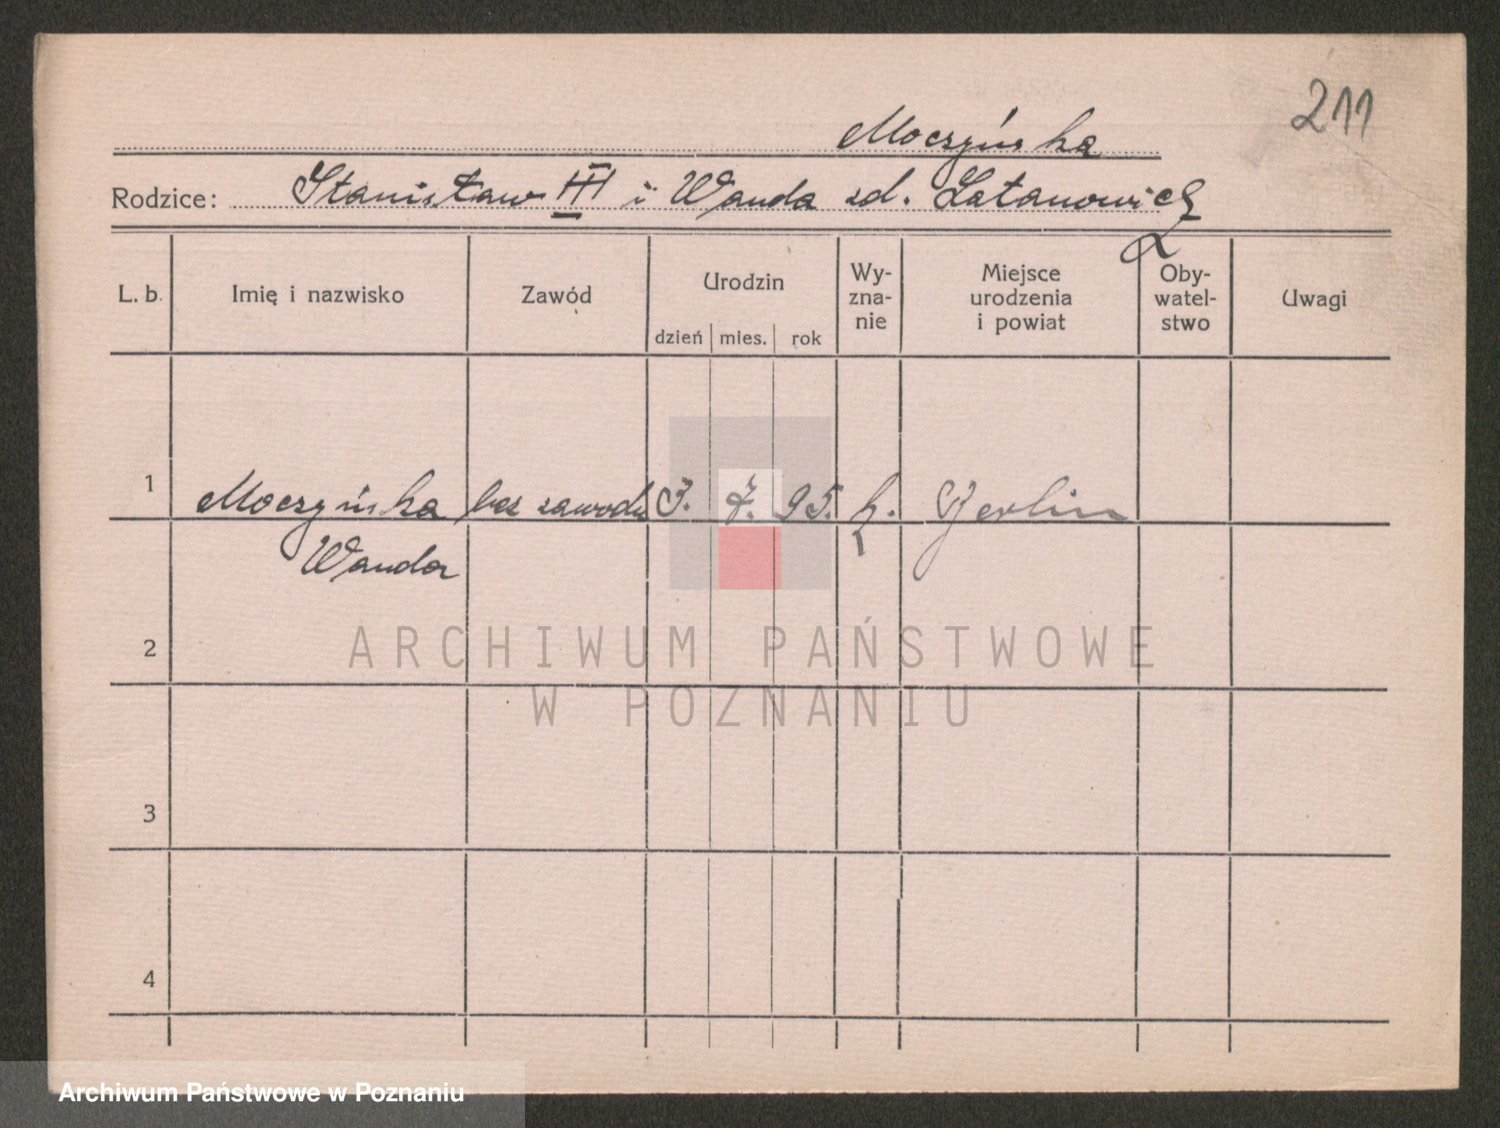 211
Moczyńska
Rodzice: Stanisław III i Wanda zd. Łatanowicz
L. b. Imię i nazwisko Zawód Urodzin dzień mies. rok Wy-zna-nie Miejsce urodzenia i powiat Oby-watel-stwo Uwagi
1 Moczyńska bez zawodu 3. 7. 95. k. Berlin
Wanda
2
ARCHIWUM PAŃSTWOWE
W POZNANIU
3
4
Archiwum Państwowe w Poznaniu